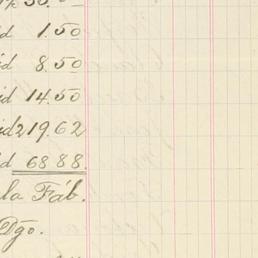 d 1.50
d 8.50
id 14.50
id 219.62
d 68.88.
la Fáb.
Dgo.